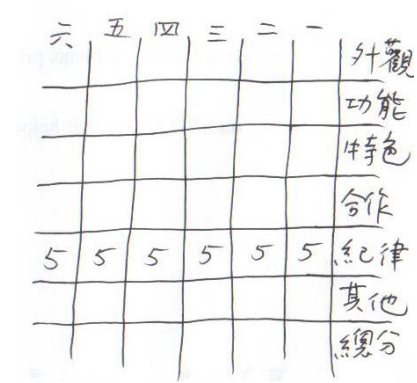 六 五 四 三 二 一
外觀
功能
特色
合作
5 5 5 5 5 5 紀律
其他
總分